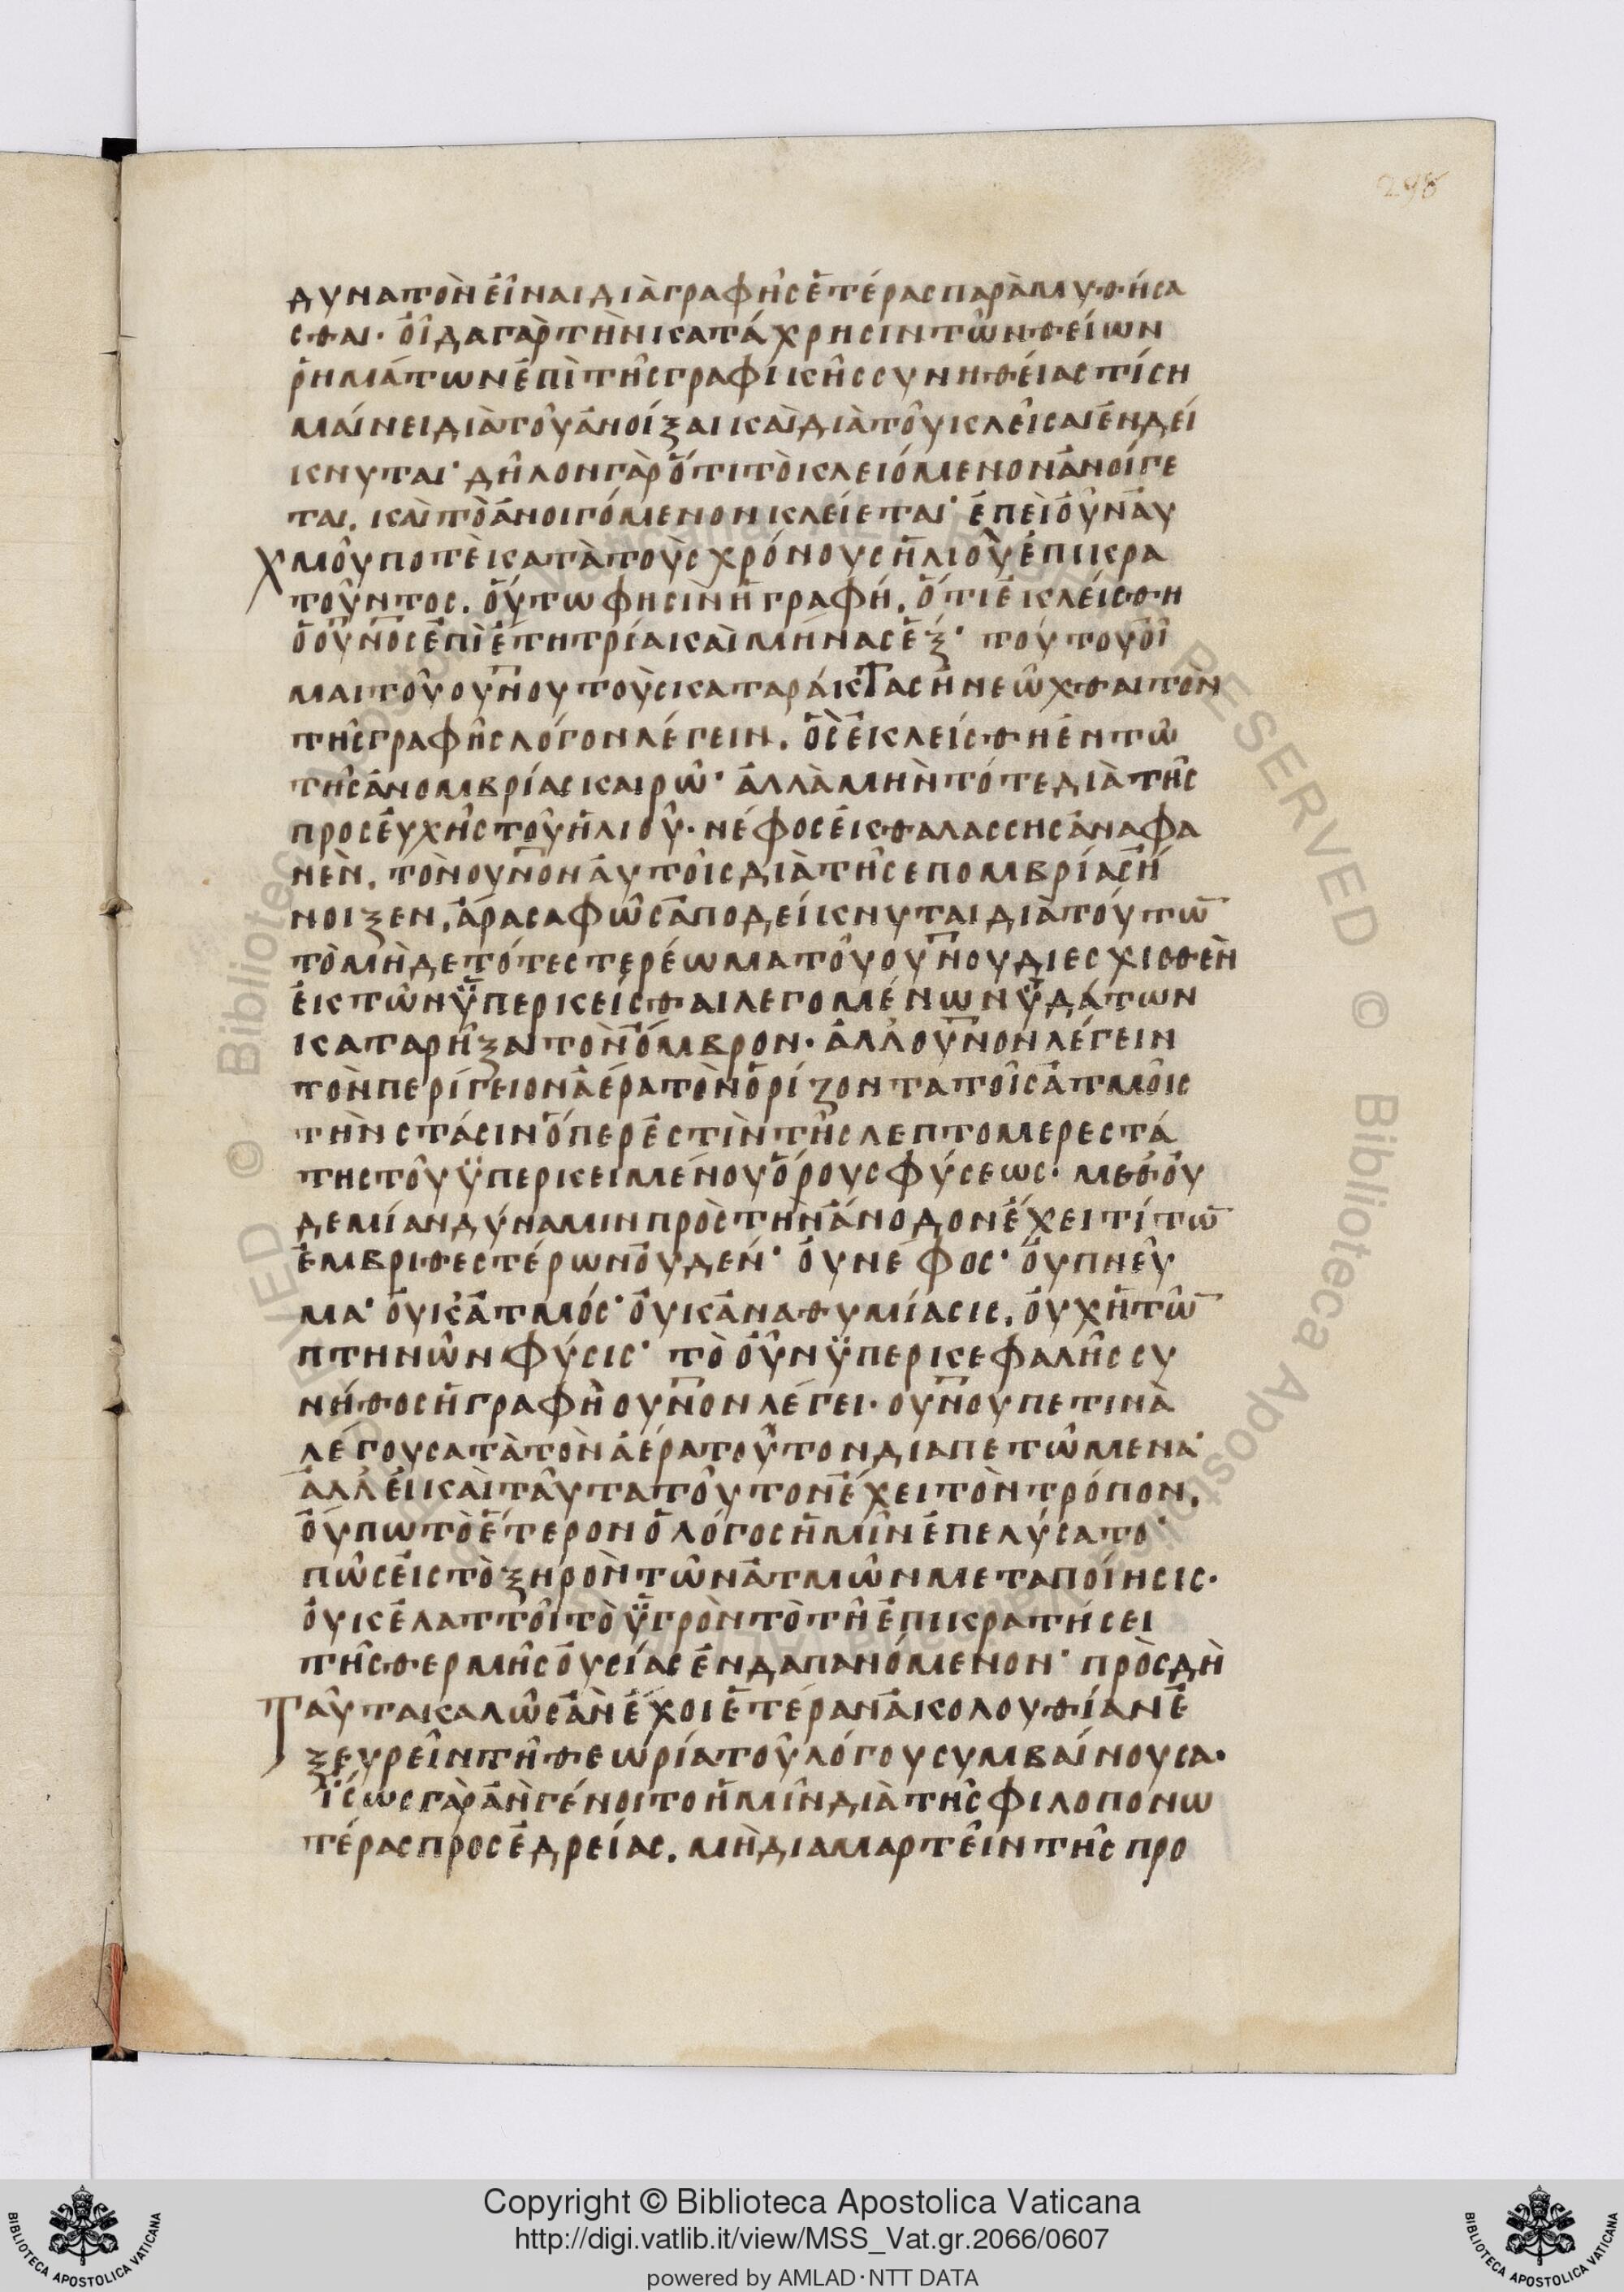 298
δυνατὸν εἶναι διὰ γραφῆς ἑτέρας παραμυθήσα
σθαι· οἶδα γὰρ τὴν κατάχρησιν τῶν θείων
ῥημάτων ἐπὶ τῆς γραφικῆς συνηθείας τί ση
μαίνει διὰ τοῦ ἀνοίξαι καὶ διὰ τοῦ κλεῖσαι ἐνδεί
κνυται· δῆλον γὰρ ὅτι τὸ κλειόμενον ἀνοίγε
ται. καὶ τὸ ἀνοιγόμενον κλείεται· ἐπεὶ οὖν αὐ
χμοῦ ποτὲ κατὰ τοὺς χρόνους ἡλιοὺ ἐπικρα
τοῦντος. οὕτω φησὶν ἡ γραφή. ὅτι ἐκλείσθη
ὁ οὐνος ἐπὶ ἔτη τρία καὶ μῆνας ἕξ· τούτου οἶ
μαι τοῦ οὐνου τοὺς καταράκτας ἠνεῶχθαι τὸν
τῆς γραφῆς λόγον λέγειν. ὃς ἐκλείσθη ἐν τῶ
τῆς ἀνομβρίας καιρῶ· ἀλλὰ μὴν τότε διὰ τῆς
προσευχῆς τοῦ ἡλιοῦ· νέφος εἰς θαλασσης ἀναφα
νὲν. τὸν οὐνον αὐτοῖς διὰ τῆς επομβρίας ἤ
νοιξεν. ἄρα σαφῶς ἀποδείκνυται διὰ τούτῶ
τὸ μὴδε τότε στερέωμα τοῦ οὐνου διεσχισθὲν
ἐκ τῶν ὑπερκεῖσθαι λεγομένων ὑδάτων
καταρῆξαι τὸν ὄμβρον· ἀλλ' οὐνον λέγειν
τὸν περίγειον ἀέρα τὸν ὁρίζοντα τοῖς ἀτμοῖς
τὴν στάσιν ὅπερ ἐστὶν τῆς λεπτομερεστά
της τοῦ ὑπερκειμένου ὅρους φύσεως· μεθ' οὐ
δεμίαν δύναμιν πρὸς τὴν ἄνοδον ἔχει τί τῶ
ἐμβριθεστέρων οὐδέν· οὐ νέφος· οὐ πνεῦ
μα· οὐκ ἀτμός· οὐκ ἀναθυμίασις. οὐχ ἡ τῶ
πτηνῶν φύσις· τὸ οὖν ὑπερκεφαλῆς συ
νήθος ἡ γραφὴ οὐνον λέγει· οὐνου πετινὰ
λέγουσα τὰ τὸν ἀέρα τοῦτον διαπετῶμενα·
ἀλλ' εἰ καὶ ταῦτα τοῦτον ἔχει τὸν τρόπον.
οὔπω τὸ ἕτερον ὁ λόγος ἡμῖν ἐπελύσατο·
πῶς εἰς τὸ ξηρὸν τῶν ἀτμῶν μεταποίησις·
οὐκ ἐλαττοῖ τὸ ὑγρὸν τὸ τῆ ἐπικρατήσει
τῆς θερμῆς οὐσίας ἐνδαπανόμενον· πρὸς δὴ
ταῦτα καλῶς ἂν ἔχοι ἑτέραν ἀκολουθίαν ἐ
ξευρεῖν τῆ θεωρία τοῦ λόγου συμβαίνουσα·
ἴσως γὰρ ἂν γένοιτο ἡμῖν διὰ τῆς φιλοπονω
τέρας προσεδρείας. μὴ διαμαρτεῖν τῆς προ
Copyright © Biblioteca Apostolica Vaticana
http://digi.vatlib.it/view/MSS_Vat.gr.2066/0607
powered by AMLAD·NTT DATA